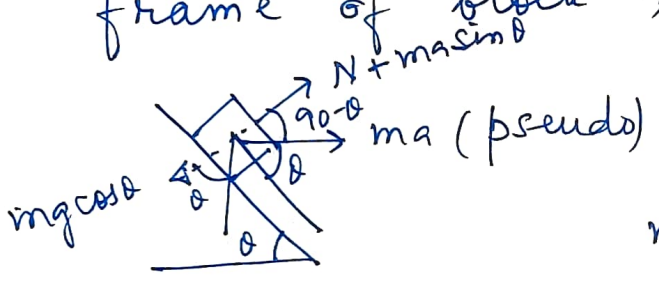 frame of block
N + masinθ
90-θ
ma (pseudo)
θ
mgcosθ
θ
θ